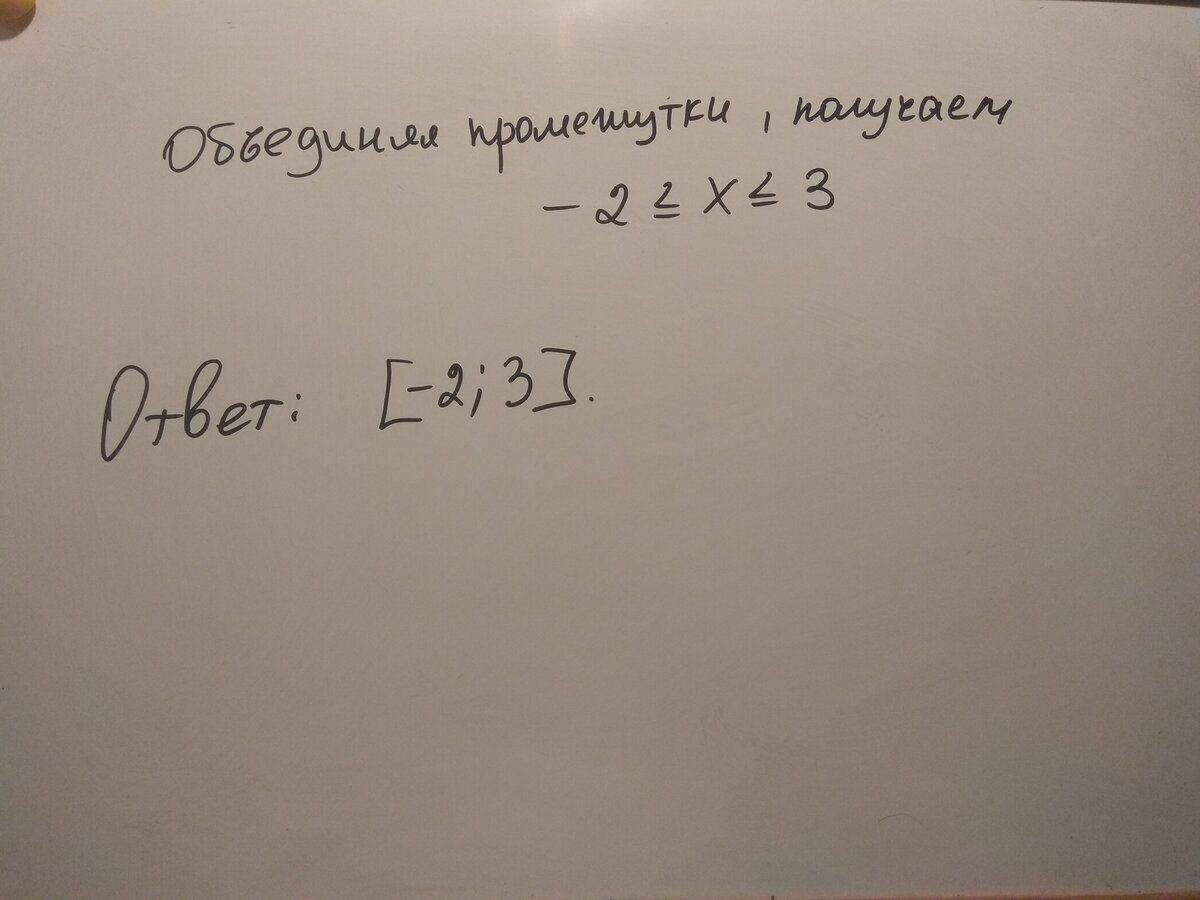 Объединяя промежутки, получаем
- 2 ≤ x ≤ 3
Ответ: [-2; 3].